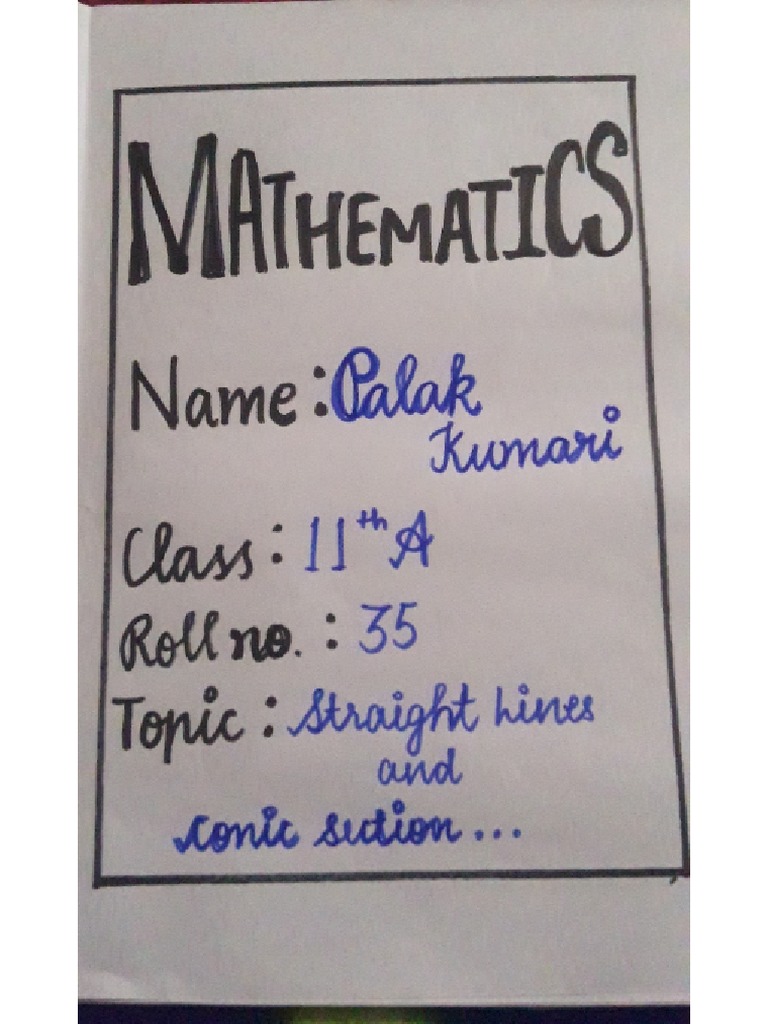 MATHEMATICS
Name : Palak
Kumari
Class : 11th A
Roll no. : 35
Topic : Straight Lines
and
conic section...